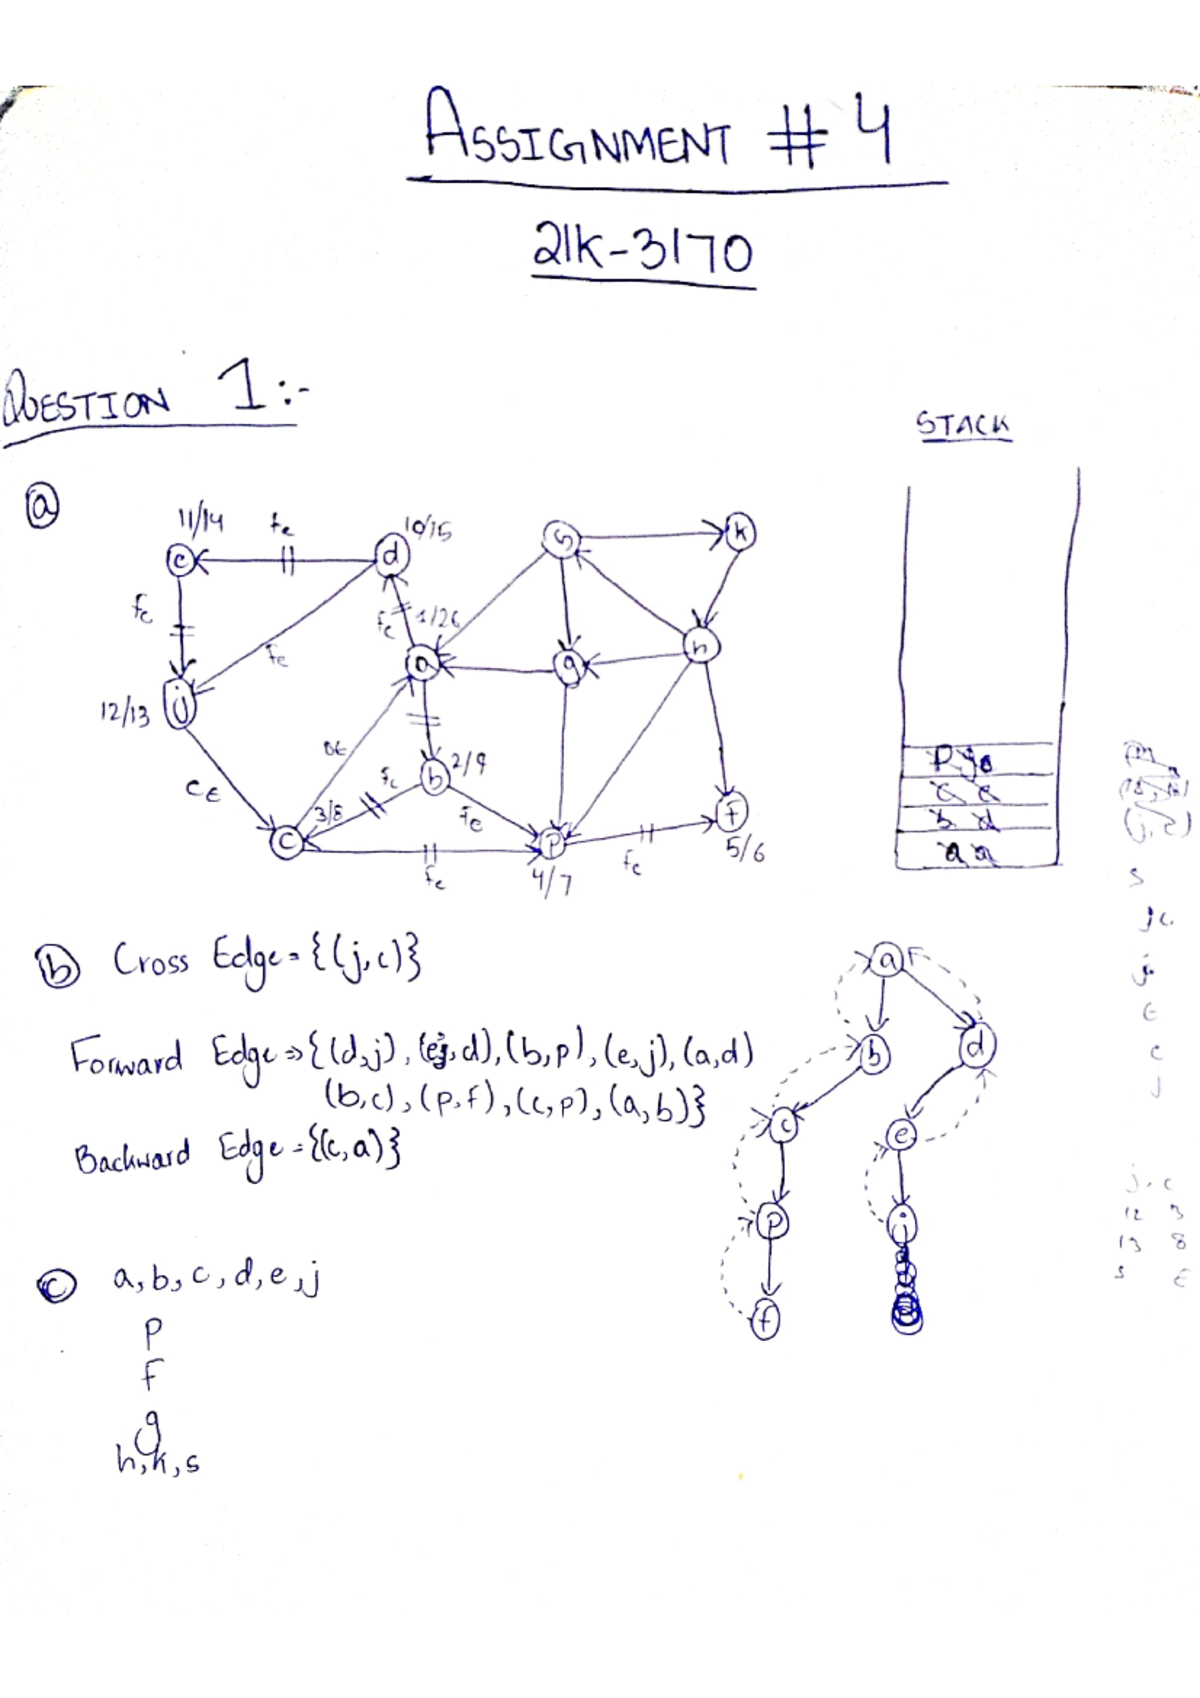 ASSIGNMENT # 4
21K-3170
QUESTION 1:-
STACK
a
11/14 fe 10/15
e d s k
fe fe 1/26
fe
a g h
j
12/13
BE fe b 2/9
CE 3/8 fe f
c p 5/6
fe 4/7 fe
p j
c e
b d
a a
b Cross Edge = {(j,c)}
Forward Edge => {(d,j), (e,d), (b,p), (e,j), (a,d)
(b,c), (p,f), (c,p), (a,b)}
Backward Edge = {(c,a)}
a
b d
c e
p j
f
c a, b, c, d, e, j
p
f
g
h, k, s
j, c
12 3
13 8
s E